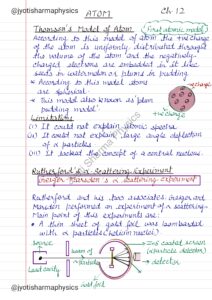 @jyotisharmaphysics
ATOM
Ch-12
Thomson's Model of Atom (First atomic model)
According to this model of atom the +ve charge
of the atom is uniformly distributed through
the volume of the atom and the negatively
charged electrons are embedded in it like
seeds in watermelon or plums in pudding
According to this model atoms
are spherical
This model also known as plum
pudding model
-ve charge
+ve charge
Limitations
(i) It could not explain atomic spectra
(ii) It could not explain large angle deflection
of α particles
(iii) It lacked the concept of a central nucleus.
Rutherford's α-Scattering Experiment
Geiger-Marsden's α scattering experiment
Rutherford and his two associates Geiger and
Marsden performed an experiment of α scattering
Main point of this experiments are:
A thin sheet of gold foil was bombarded
with α particles (helium nuclei)
source
beam of
α particle
ZnS coated screen
(particle detector)
detector
Lead cavity
gold foil
@jyotisharmaphysics